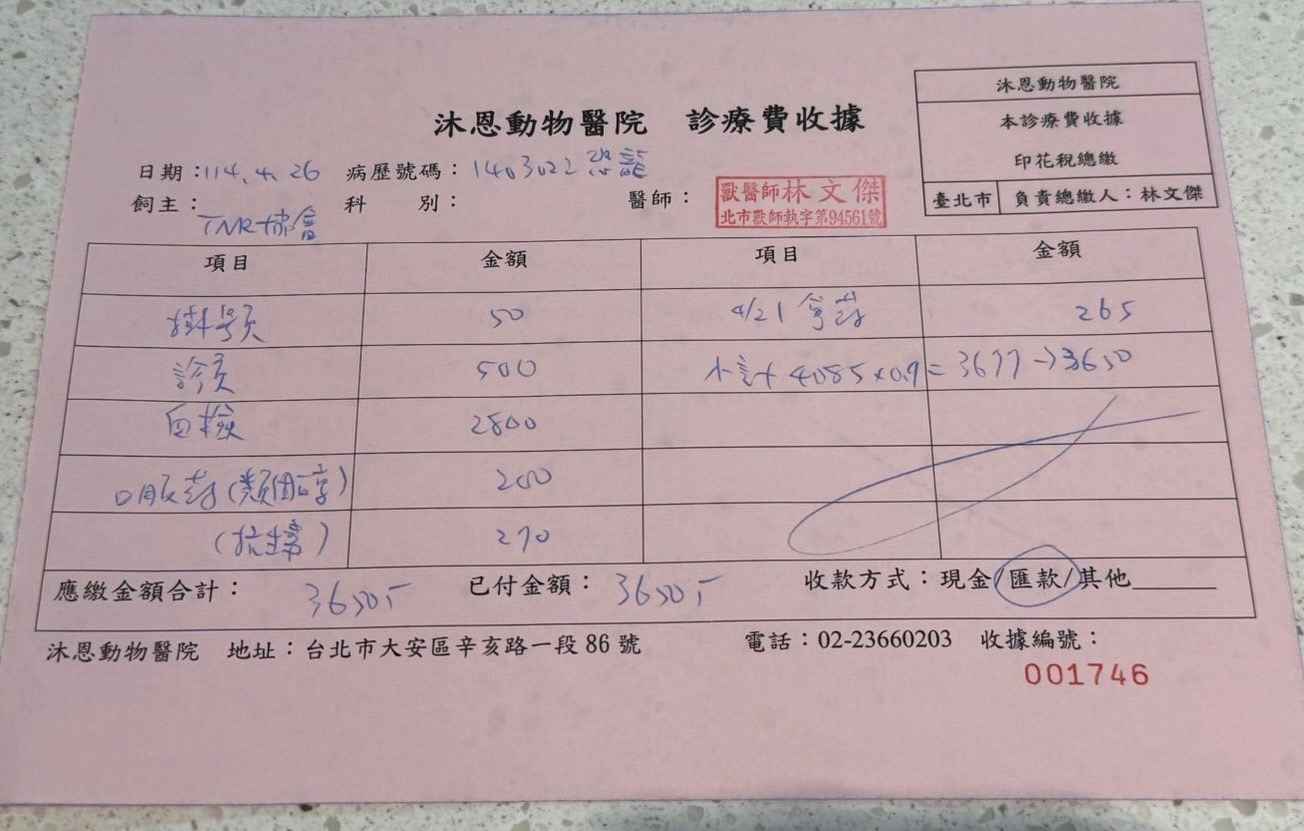 沐恩動物醫院
本診療費收據
印花稅總繳
臺北市 負責總繳人：林文傑
沐恩動物醫院 診療費收據
日期：114.4.26 病歷號碼：1403022 恐龍
飼主：TNR協會 科 別： 醫師：
獸醫師林文傑
北市獸師執字第94561號
項目 金額 項目 金額
掛號費 50 4/21 拿药 265
診費 500 小計 4085x0.9=3677→3650
血檢 2800
口服药(類固醇) 200
(抗生素) 270
應繳金額合計： 3650 已付金額： 3650 收款方式：現金/匯款/其他
沐恩動物醫院 地址：台北市大安區辛亥路一段 86 號 電話：02-23660203 收據編號：
001746